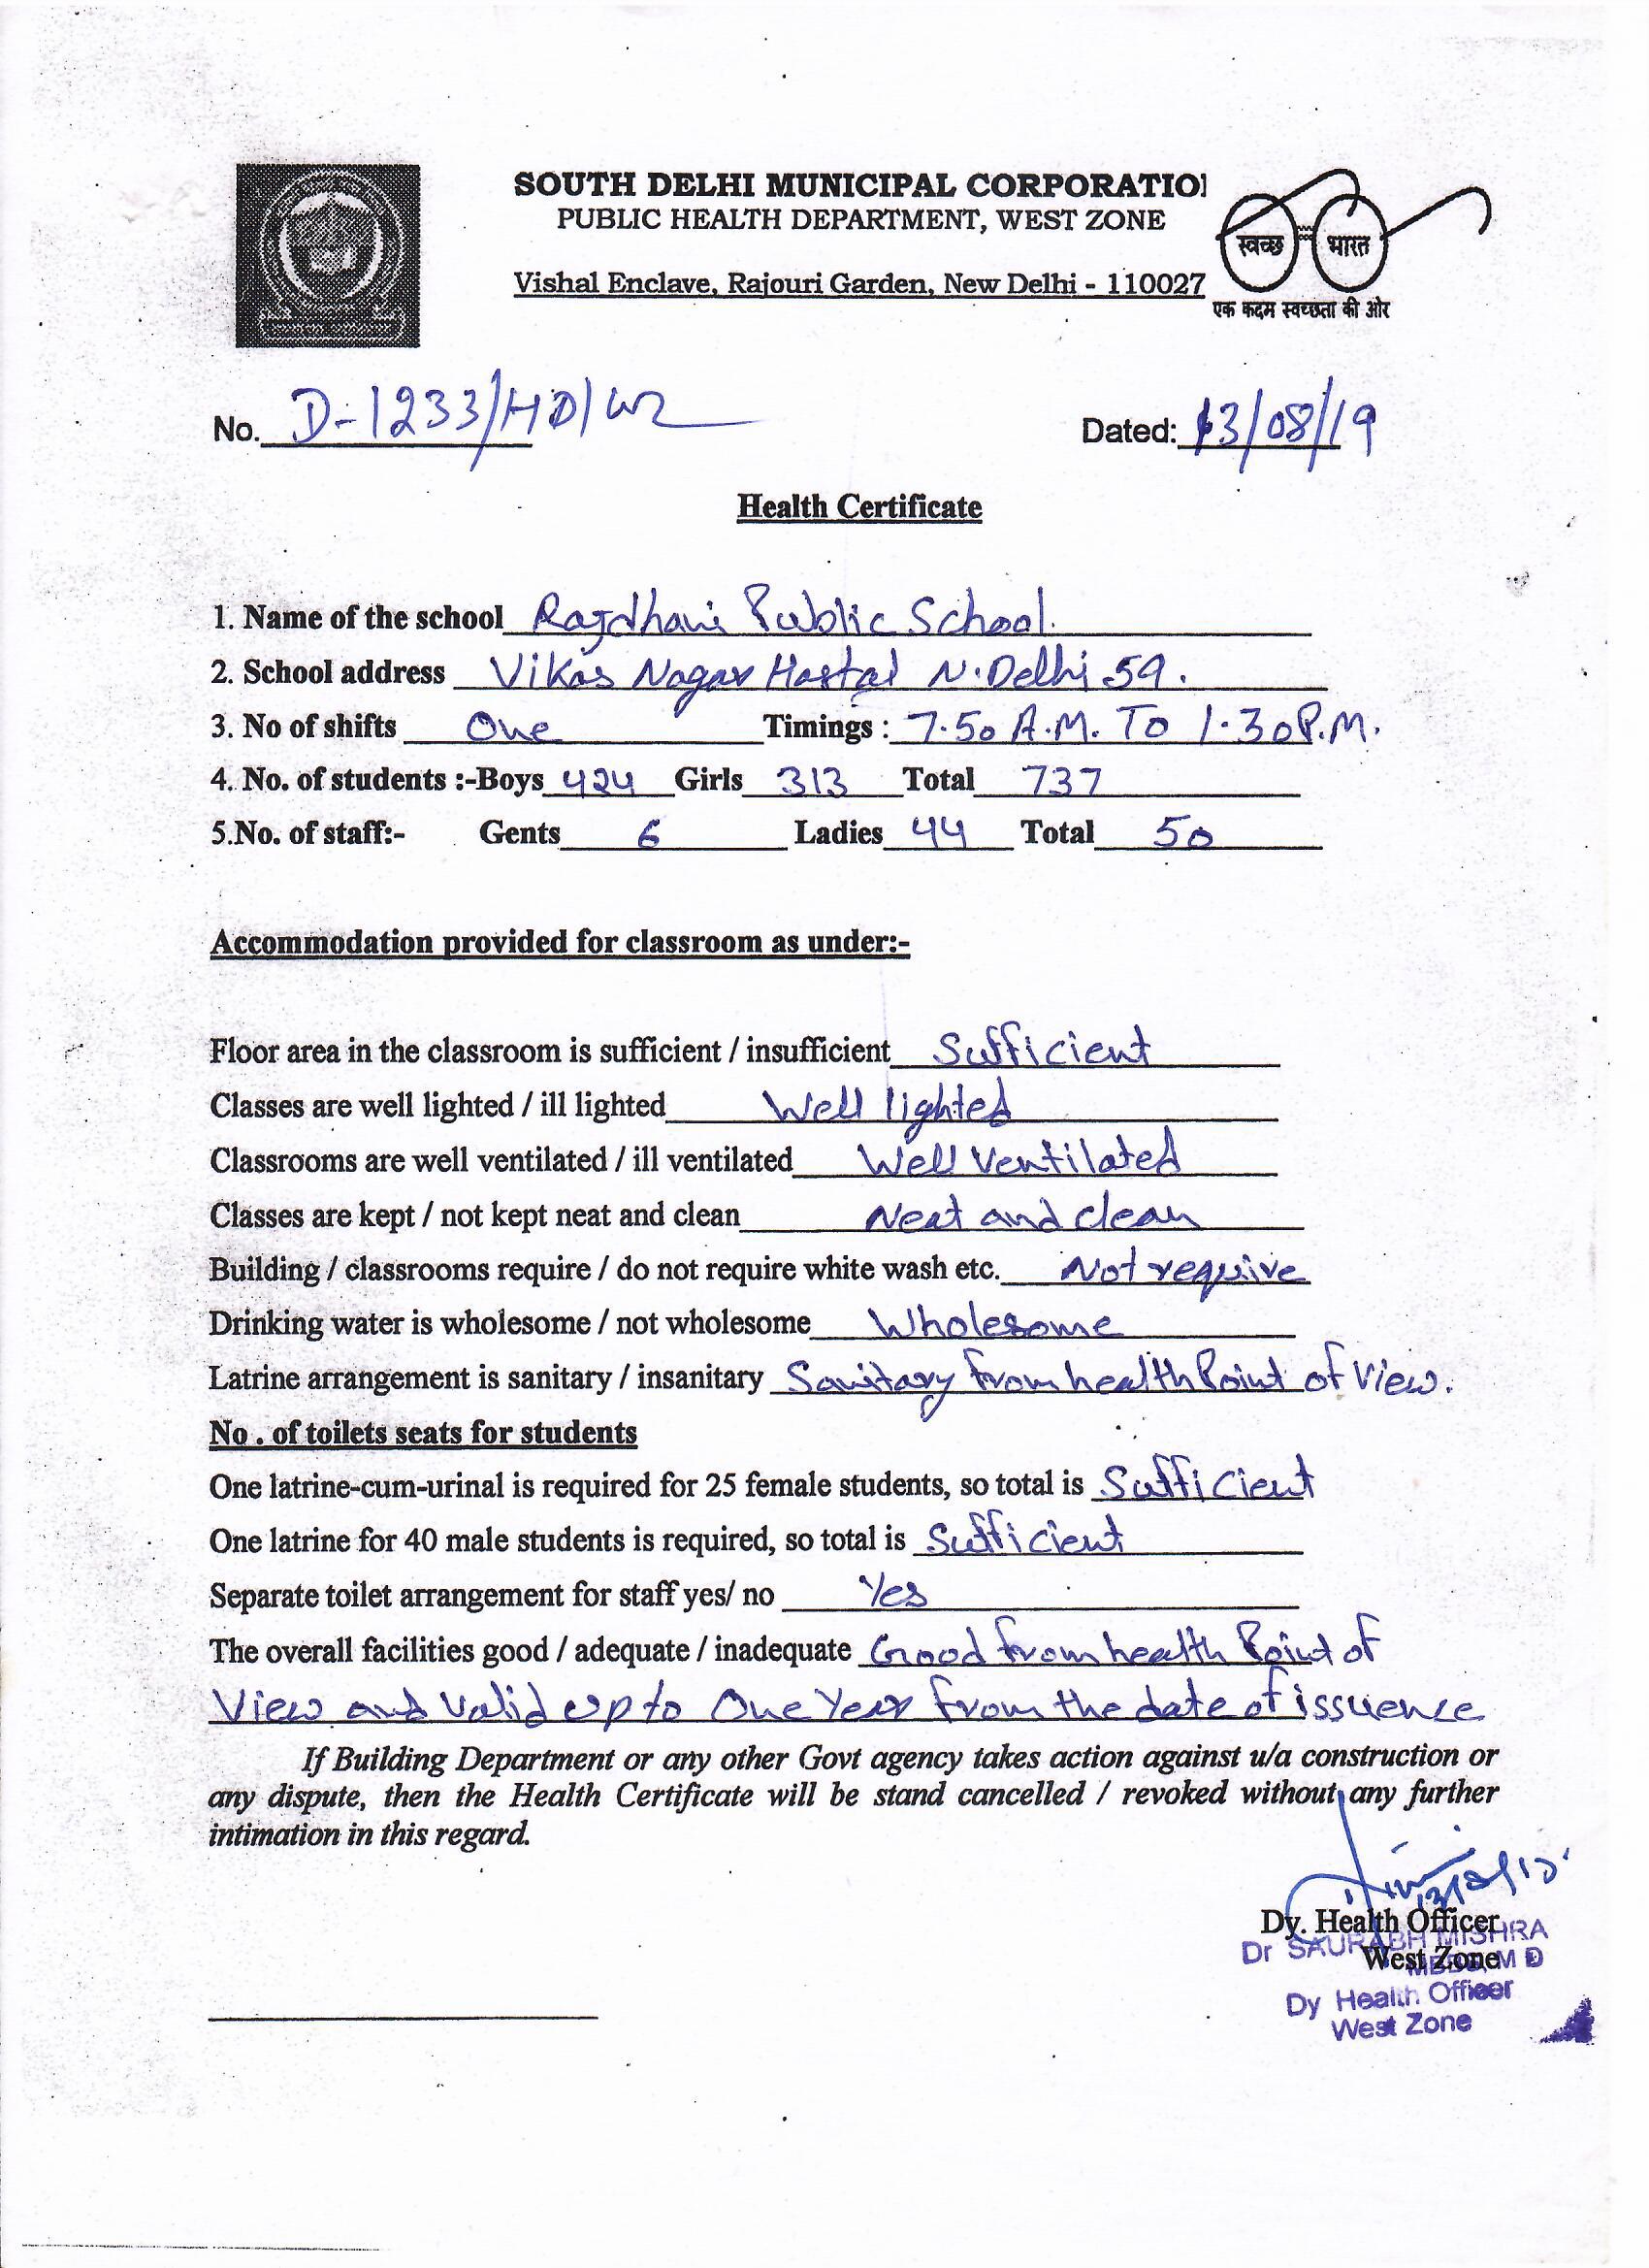 SOUTH DELHI MUNICIPAL CORPORATIO
PUBLIC HEALTH DEPARTMENT, WEST ZONE
Vishal Enclave, Rajouri Garden, New Delhi - 110027
स्वच्छ भारत
एक कदम स्वच्छता की ओर
No. D-1233/HD/WZ Dated: 13/08/19
Health Certificate
1. Name of the school Rajdhani Public School.
2. School address Vikas Nagar Hastal N.Delhi 59.
3. No of shifts One Timings : 7.50 A.M. To 1.30P.M.
4. No. of students :-Boys 424 Girls 313 Total 737
5.No. of staff:- Gents 6 Ladies 44 Total 50
Accommodation provided for classroom as under:-
Floor area in the classroom is sufficient / insufficient Sufficient
Classes are well lighted / ill lighted Well lighted
Classrooms are well ventilated / ill ventilated Well Ventilated
Classes are kept / not kept neat and clean Neat and clean
Building / classrooms require / do not require white wash etc. Not require
Drinking water is wholesome / not wholesome Wholesome
Latrine arrangement is sanitary / insanitary Sanitary from health Point of View.
No . of toilets seats for students
One latrine-cum-urinal is required for 25 female students, so total is Sufficient
One latrine for 40 male students is required, so total is Sufficient
Separate toilet arrangement for staff yes/ no Yes
The overall facilities good / adequate / inadequate Good from health Point of
View and Valid up to One Year from the date of issuence
If Building Department or any other Govt agency takes action against u/a construction or
any dispute, then the Health Certificate will be stand cancelled / revoked without any further
intimation in this regard.
Dy. Health Officer
Dr SAURABH MISHRA
West Zone
MBBS, M D
Dy Health Officer
West Zone